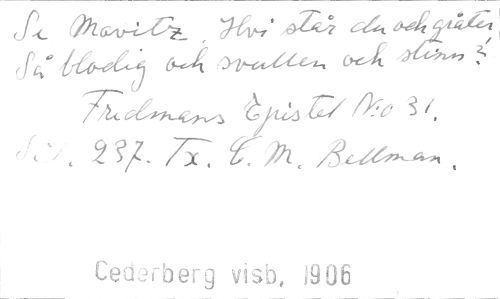 Se Movitz. Hvi står du och gråter,
Så blodig och svullen och stinn?
Fredmans Epistel No 31.
Sid. 237. Tx. C. M. Bellman.
Cederberg visb, 1906